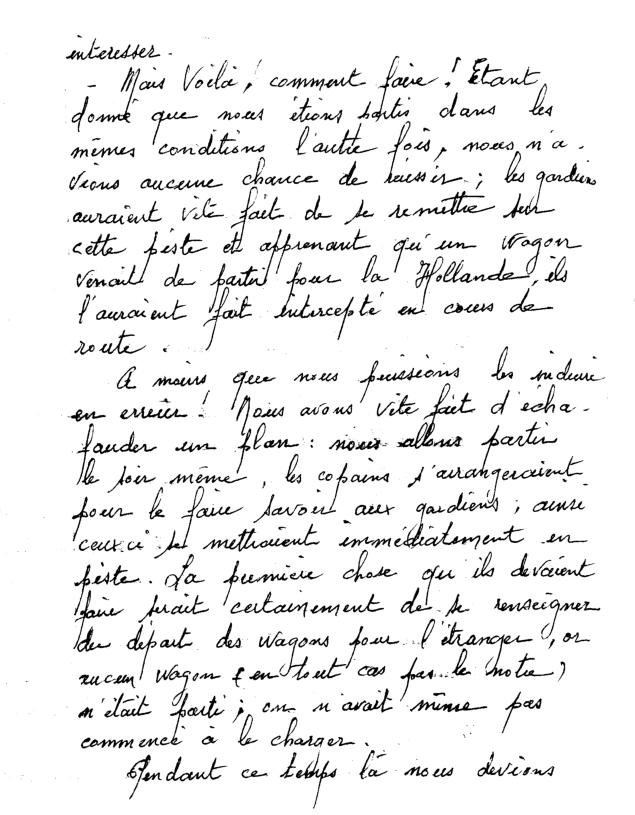 interesser.
- Mais Voilà, ! comment faire ! Etant
donné que nous étions partis dans les
mêmes conditions l'autre fois, nous n'a-
vions aucune chance de réussir ; les gardiens
auraient vite fait de se remettre sur
cette piste et apprenant qu'un Wagon
venait de partir pour la Hollande, ils
l'auraient fait intercepté en cours de
route.
A moins que nous puissions les induire
en erreur ! Nous avons vite fait d'écha-
fauder un plan : nous allons partir
le soir même, les copains s'arrangeraient
pour le faire savoir aux gardiens ; ainsi
ceux-ci se mettraient immédiatement en
piste. La première chose qu'ils devaient
faire serait certainement de se renseigner
du départ des wagons pour l'étranger, or
aucun wagon (en tout cas pas le notre)
n'était parti ; on n'avait même pas
commencé à le charger.
Pendant ce temps là nous devions